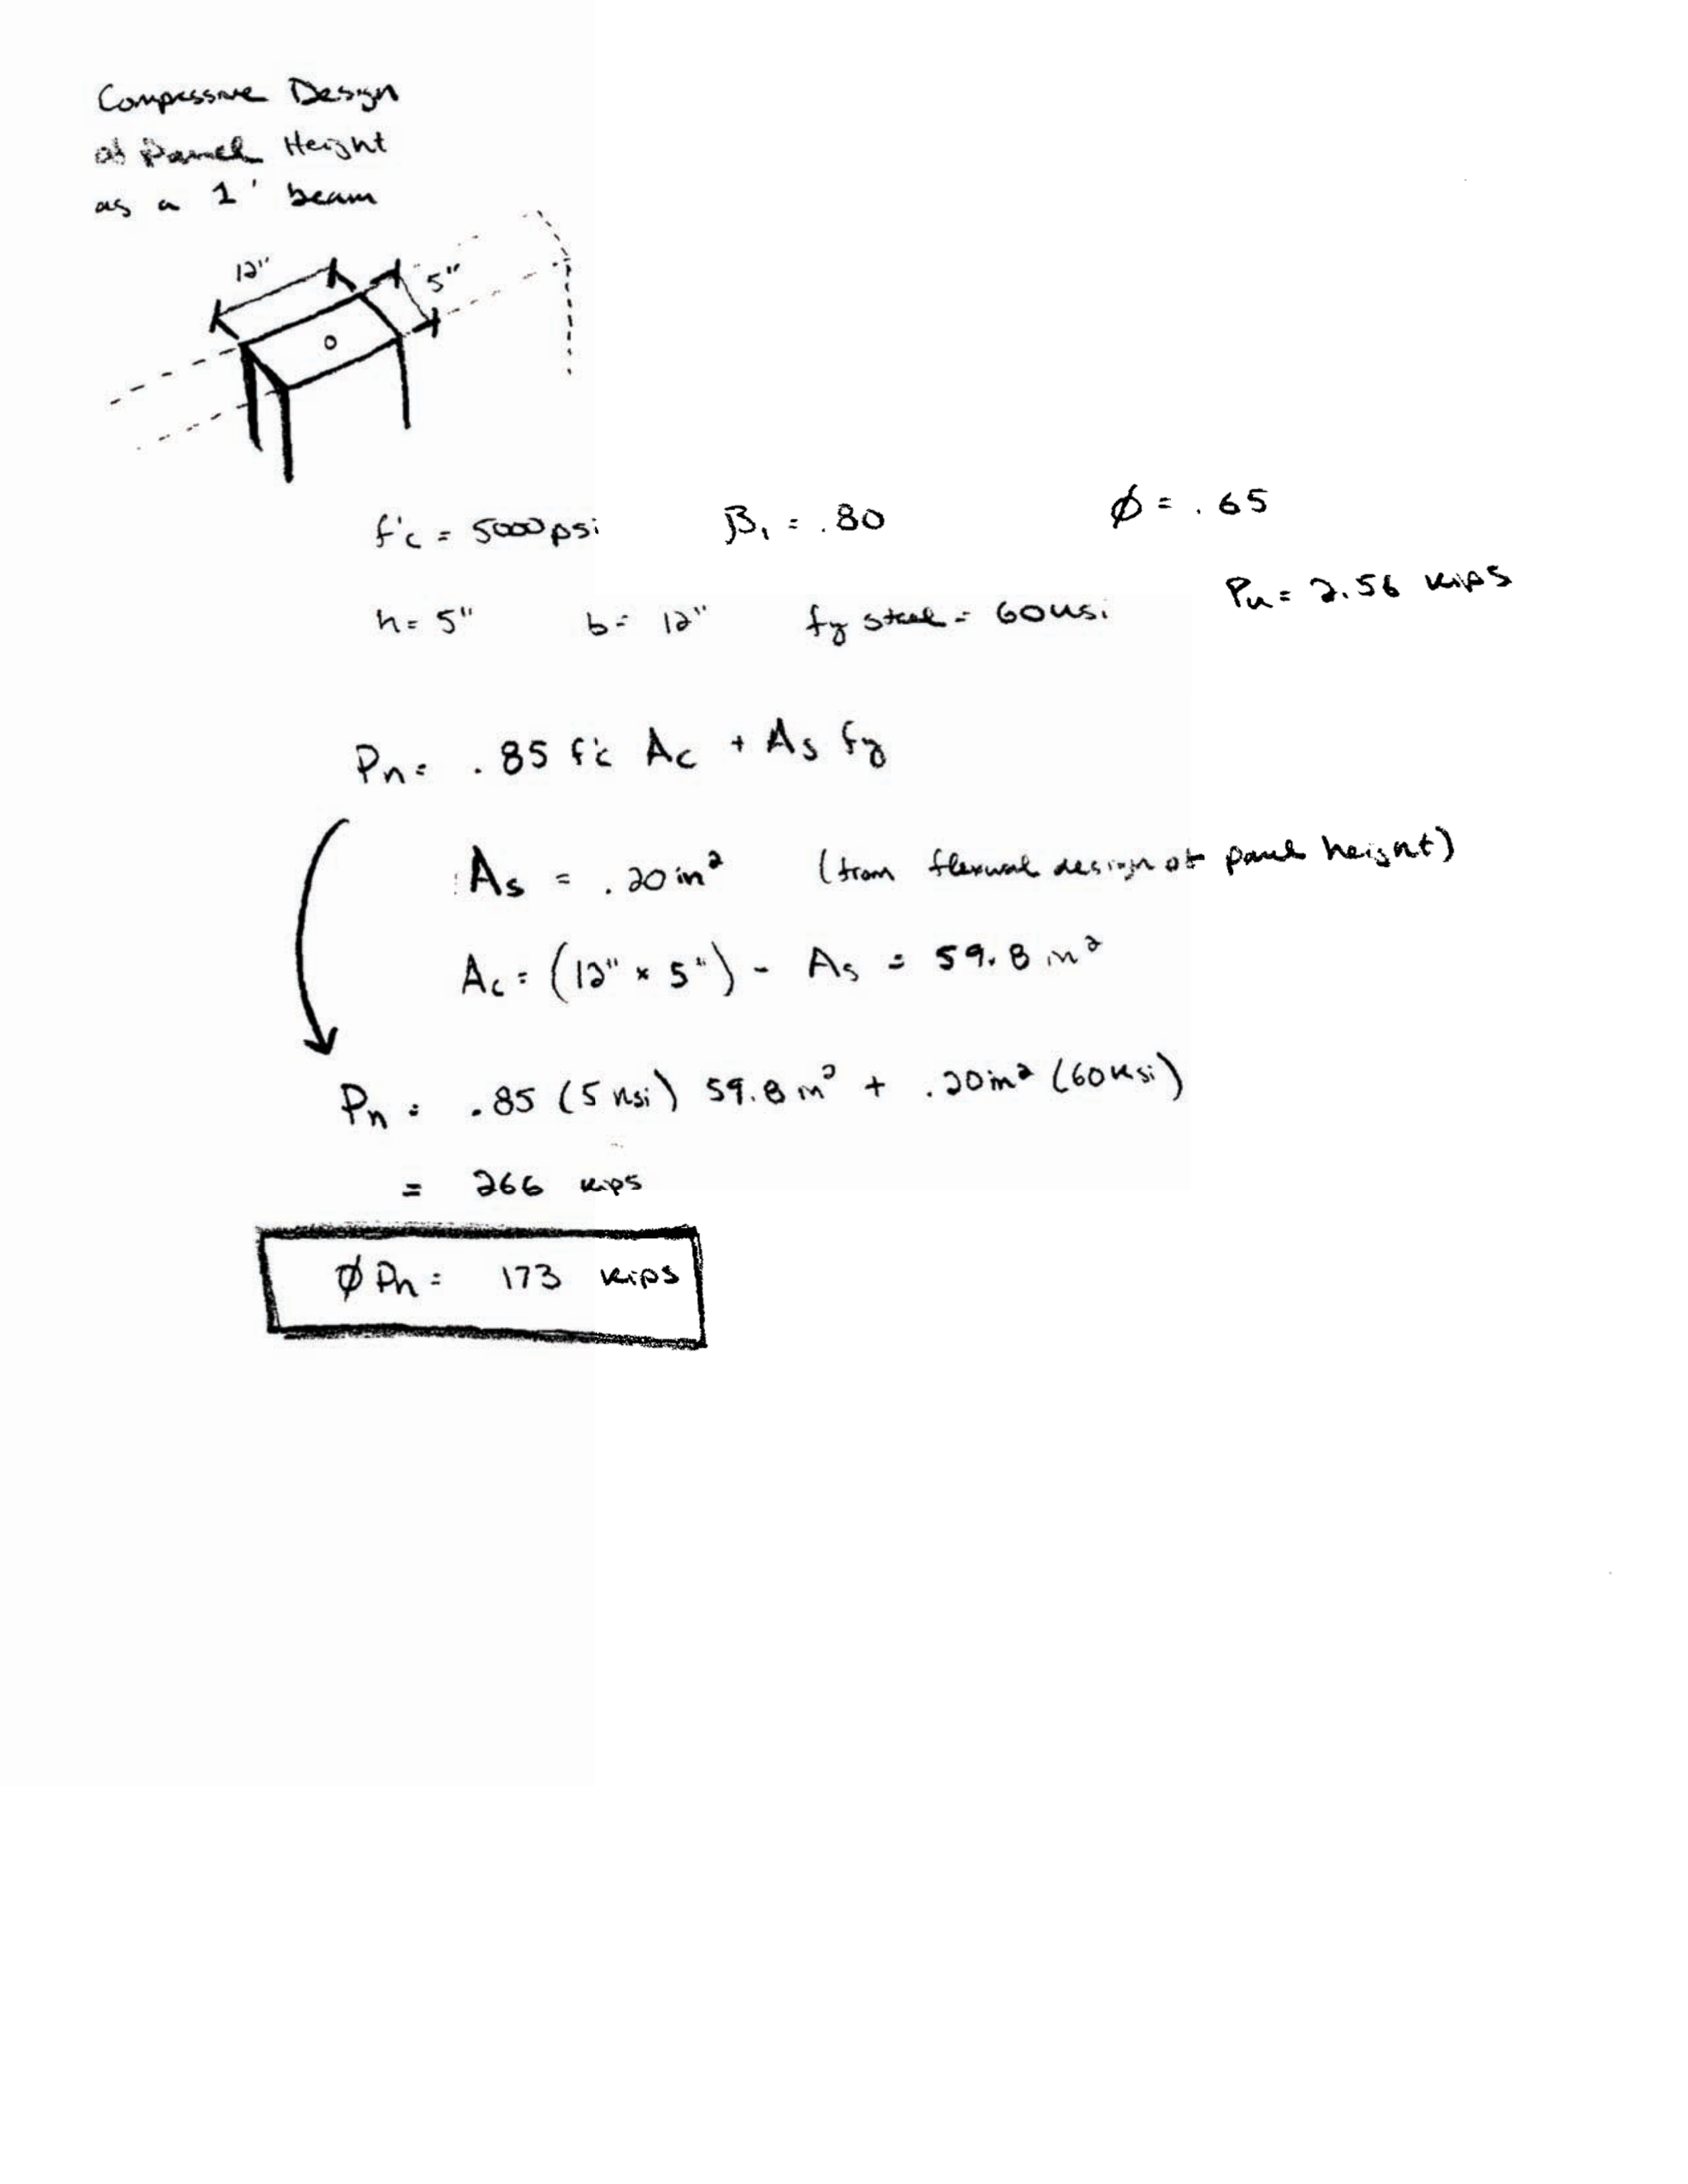 Compressive Design
of Panel Height
as a 1' beam
12"
5"
f'c = 5000psi β₁ = .80 ø = .65
h= 5" b= 12" fy steel = 60ksi Pu = 2.56 kips
Pn= .85 f'c Ac + As fy
As = .20in² (from flexural design of panel height)
Ac = (12" × 5") - As = 59.8 in²
Pn = .85 (5 ksi) 59.8 in² + .20in² (60ksi)
= 266 kips
ø Pn = 173 kips